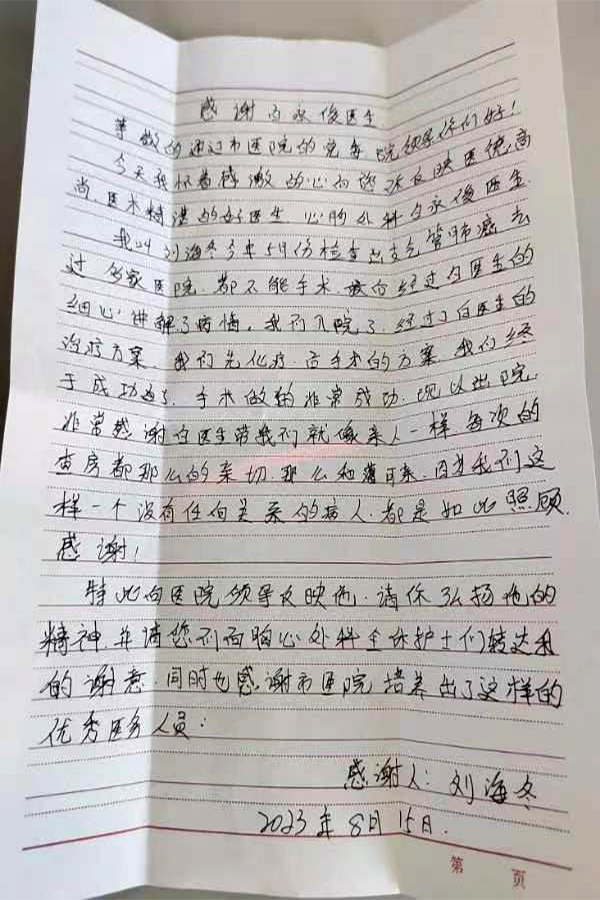 感谢白永俊医生
尊敬的通辽市医院的党委院领导你们好!
今天我怀着感激的心向您诉反映医德高
尚.医术精湛的好医生.心胸外科白永俊医生.
我叫刘海冬今年5月份检查出支气管肺癌去
过多家医院.都不能手术.最后经过白医生的
细心讲解了病情,我们入院了.经过了白医生的
治疗方案.我们先化疗.后手术的方案.我们终
于成功了.手术做的非常成功.现以出院.
非常感谢白医生带我们就像亲人一样每次的
查房都那么的亲切.那么和蔼可亲.因为我们这
样一个没有任何关系的病人.都是如此照顾.
感谢!
特此向医院领导反映他.请你弘扬他的
精神.并请您们向胸心外科全体护士们转达我
的谢意.同时也感谢市医院培养出了这样的
优秀医务人员:
感谢人:刘海冬
2023年8月15日.
第 页